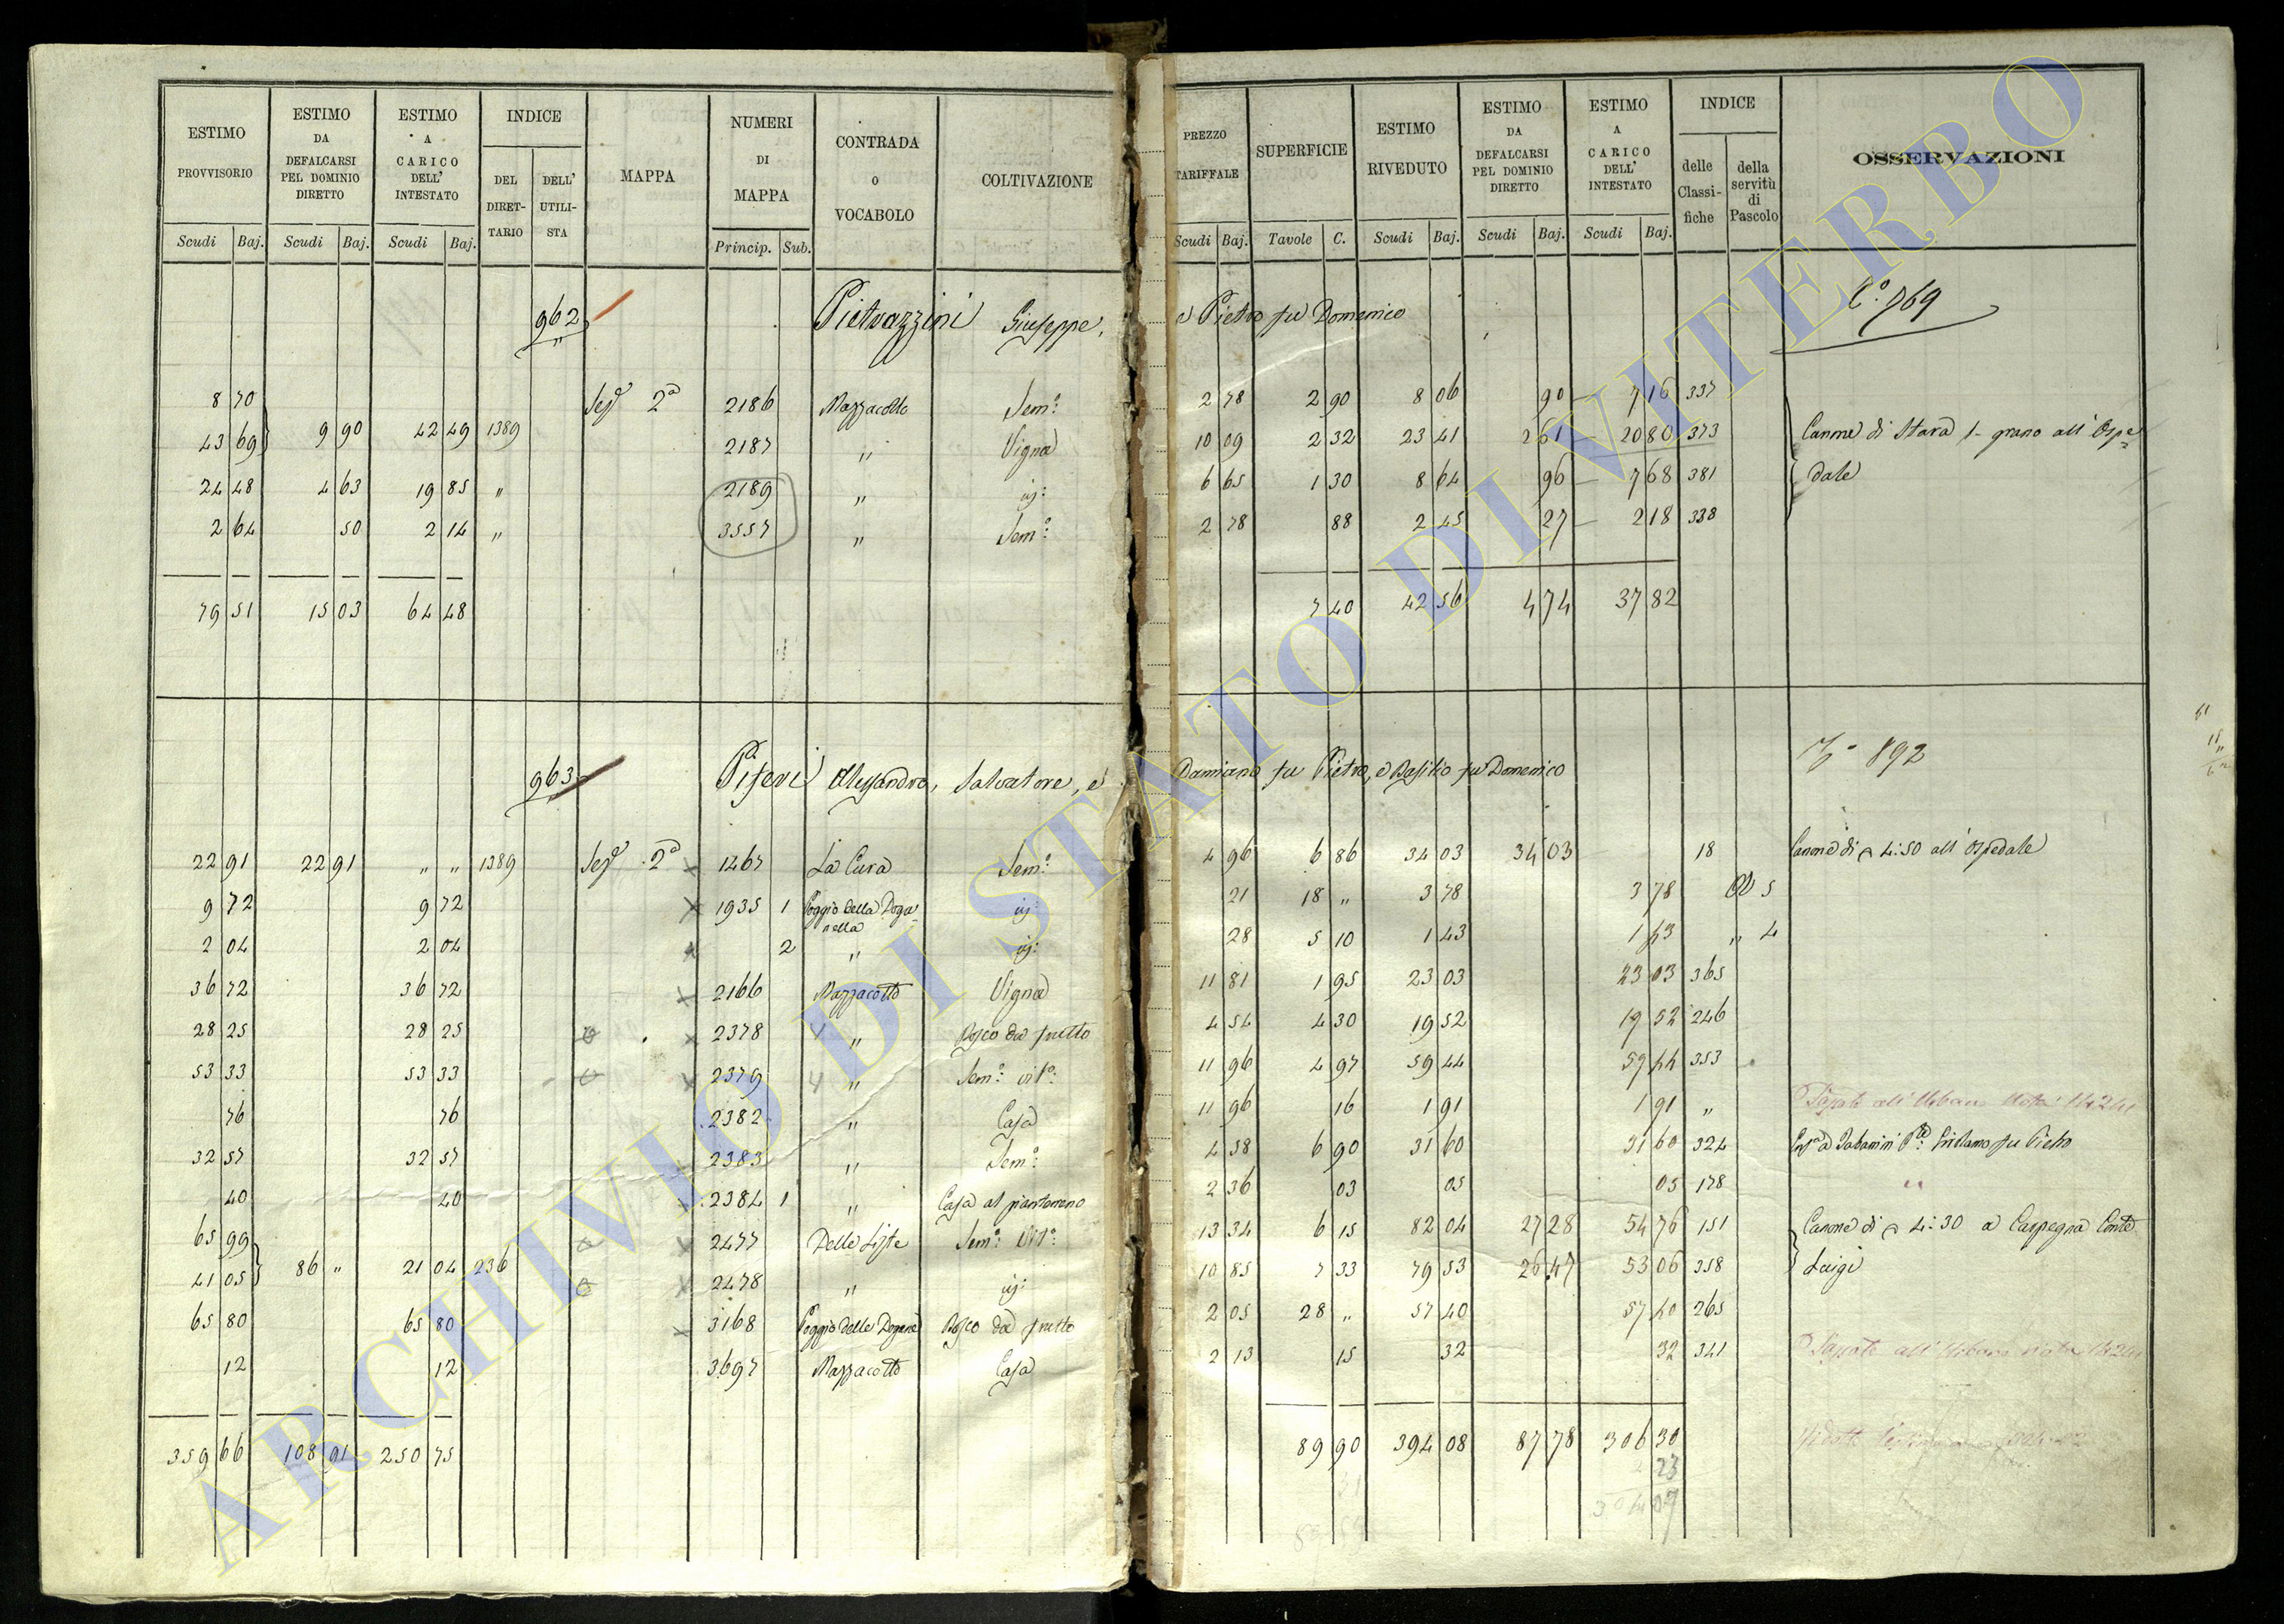 ESTIMO PROVVISORIO | ESTIMO DA DEFALCARSI PEL DOMINIO DIRETTO | ESTIMO A CARICO DELL' INTESTATO | INDICE | MAPPA | NUMERI DI MAPPA | CONTRADA O VOCABOLO | COLTIVAZIONE | PREZZO TARIFFALE | SUPERFICIE | ESTIMO RIVEDUTO | ESTIMO DA DEFALCARSI PEL DOMINIO DIRETTO | ESTIMO A CARICO DELL' INTESTATO | INDICE | OSSERVAZIONI
DEL DIRET-TARIO | DELL' UTILI-STA | delle Classi-fiche | della servitù di Pascolo
Scudi Baj. | Scudi Baj. | Scudi Baj. | Princip. Sub. | Scudi Baj. | Tavole C. | Scudi Baj. | Scudi Baj. | Scudi Baj.
962 Pietrazzini Giuseppe, e Pietro fu Domenico C.° 969
8 70 | Sez.e 2a | 2186 | Mazzacotto | Sem.° | 2 78 | 2 90 | 8 06 | 90 | 7 16 | 337
43 69 | 9 90 | 42 49 | 1389 | 2187 | " | Vigna | 10 09 | 2 32 | 23 41 | 2 61 | 20 80 | 373 | Canone di Stara 1- grano all' Ospe=
24 48 | 4 63 | 19 85 | " | 2189 | " | id: | 6 65 | 1 30 | 8 64 | 96 | 7 68 | 381 | dale
2 64 | 50 | 2 14 | " | 3557 | " | Sem.° | 2 78 | 88 | 2 45 | 27 | 2 18 | 338
79 51 | 15 03 | 64 48 | 7 40 | 42 56 | 4 74 | 37 82
963 Piferi Alessandro, Salvatore, e Damiano fu Pietro, e Basilio fu Domenico 892
22 91 | 22 91 | " " | 1389 | Sez.e 2a | 1467 | La Cura | Sem.° | 4 96 | 6 86 | 34 03 | 34 03 | 18 | Canone di 4:50 all' Ospedale
9 72 | 9 72 | 1935 | 1 | Poggio della Doga=nella | id: | 21 | 18 " | 3 78 | 3 78 | 5
2 04 | 2 04 | 2 | " | id: | 28 | 5 10 | 1 43 | 1 43 | " 4
36 72 | 36 72 | 2166 | Mazzacotto | Vigna | 11 81 | 1 95 | 23 03 | 23 03 | 365
28 25 | 28 25 | 2378 | " | Bosco da frutto | 4 54 | 4 30 | 19 52 | 19 52 | 246
53 33 | 53 33 | 2379 | " | Sem.° vit.° | 11 96 | 4 97 | 59 44 | 59 44 | 353
76 | 76 | 2382 | " | Casa | 11 96 | 16 | 1 91 | 1 91 | " | Passato all' Urbano
32 57 | 32 57 | 2383 | " | Sem.° | 4 58 | 6 90 | 31 60 | 31 60 | 324 | fu Pietro
40 | 40 | 2384 | 1 | " | Casa al pianterreno | 2 36 | 03 | 05 | 05 | 178 | "
65 99 | 2477 | Delle Liste | Sem.° Vit.° | 13 34 | 6 15 | 82 04 | 27 28 | 54 76 | 151 | Canone di 4:30 a Carpegna Conte
41 05 | 86 " | 21 04 | 236 | 2478 | " | id: | 10 85 | 7 33 | 79 53 | 26 47 | 53 06 | 358 | Luigi
65 80 | 65 80 | 3168 | Poggio delle Dogane | Bosco da frutto | 2 05 | 28 " | 57 40 | 57 40 | 265
12 | 12 | 3697 | Mazzacotto | Casa | 2 13 | 15 | 32 | 32 | 341 | Passato all' Urbano
359 66 | 108 91 | 250 75 | 89 90 | 394 08 | 87 78 | 306 30
2 23
304 07
ARCHIVIO DI STATO DI VITERBO